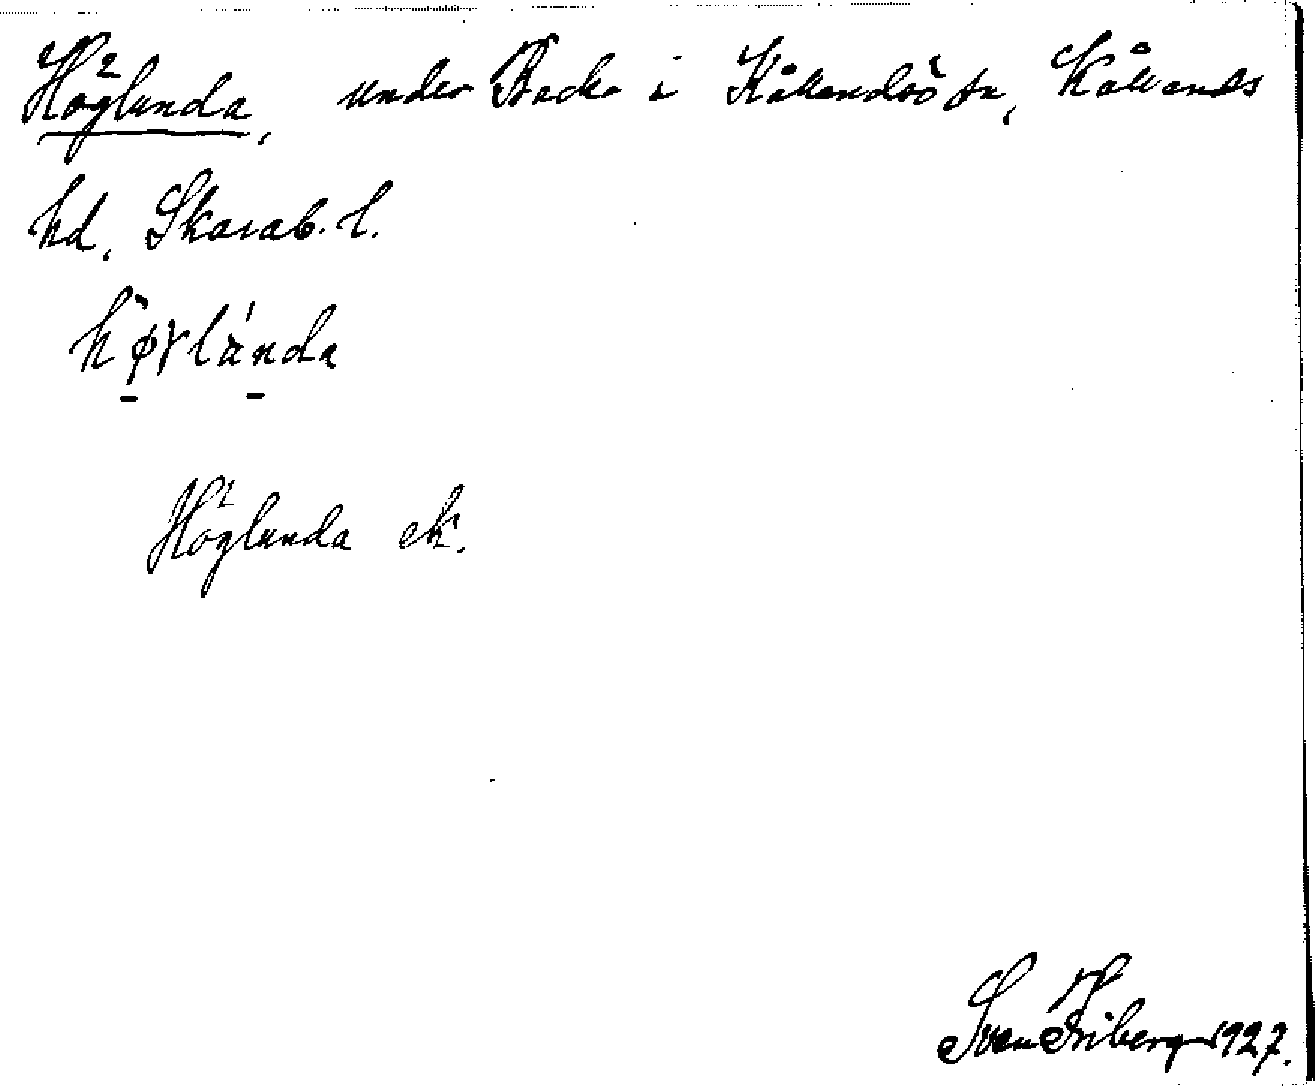 Höglunda, under Backa i Kållandsö sn, Kållands
hd, Skarab. l.
Höglunda ek.
Sven Friberg 1927.